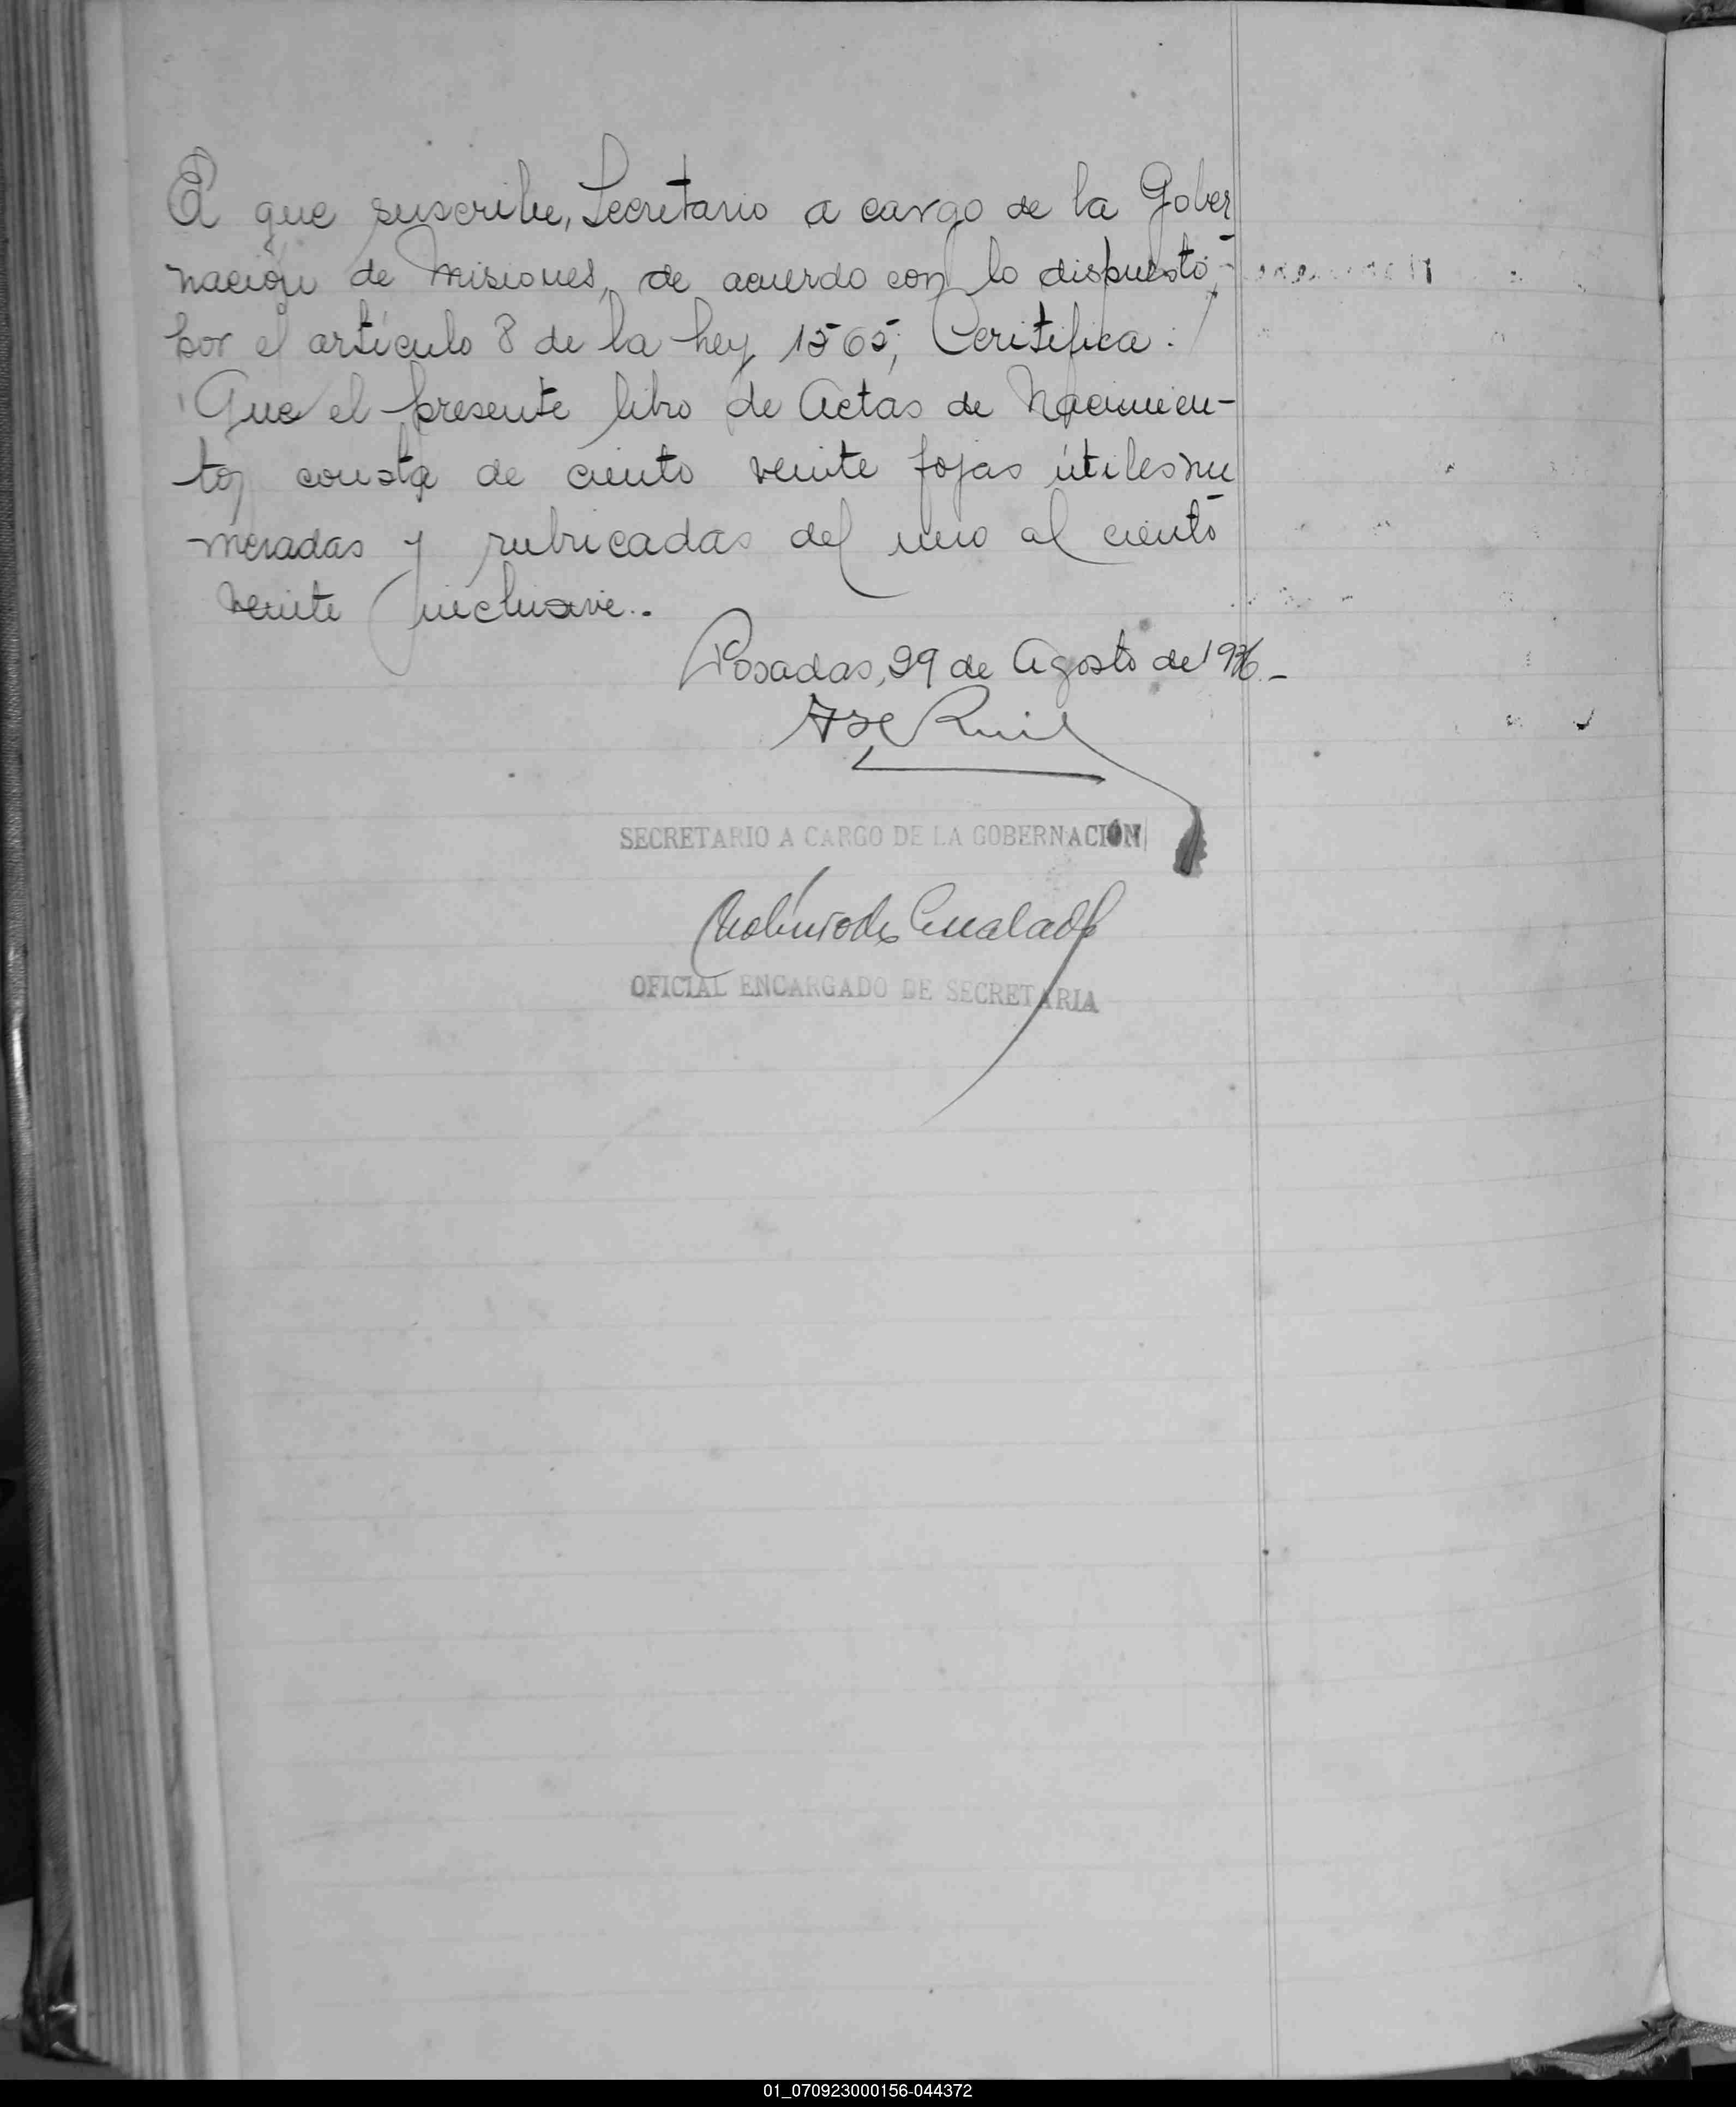 El que suscribe, Secretario a cargo de la Gober
nación de Misiones, de acuerdo con lo dispuesto
por el artículo 8 de la Ley 1565, Ceritifica:
Que el presente libro de Actas de Nacimien-
tos consta de ciento veinte fojas útiles nu
meradas y rubricadas del uno al ciento
veinte inclusive.-
Posadas, 29 de Agosto de 1936.-
Ruiz
SECRETARIO A CARGO DE LA GOBERNACIÓN
OFICIAL ENCARGADO DE SECRETARIA
01_070923000156-044372